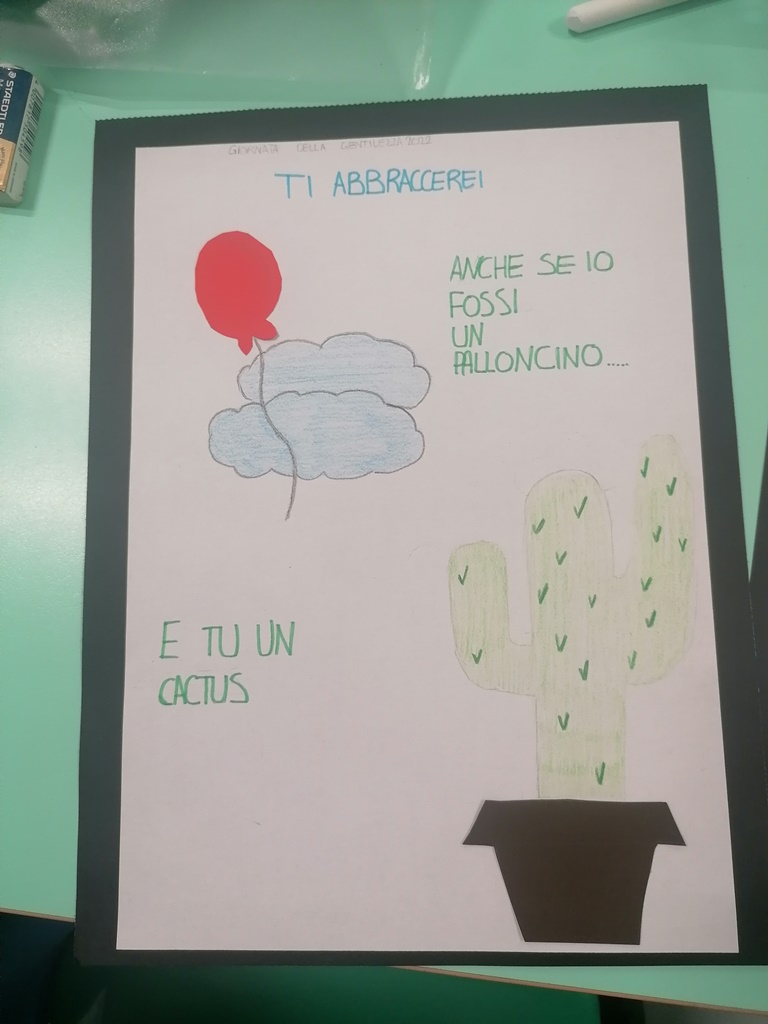 GIORNATA DELLA GENTILEZZA 2022
TI ABBRACCEREI
ANCHE SE IO
FOSSI
UN
PALLONCINO.....
E TU UN
CACTUS
STAEDTLER